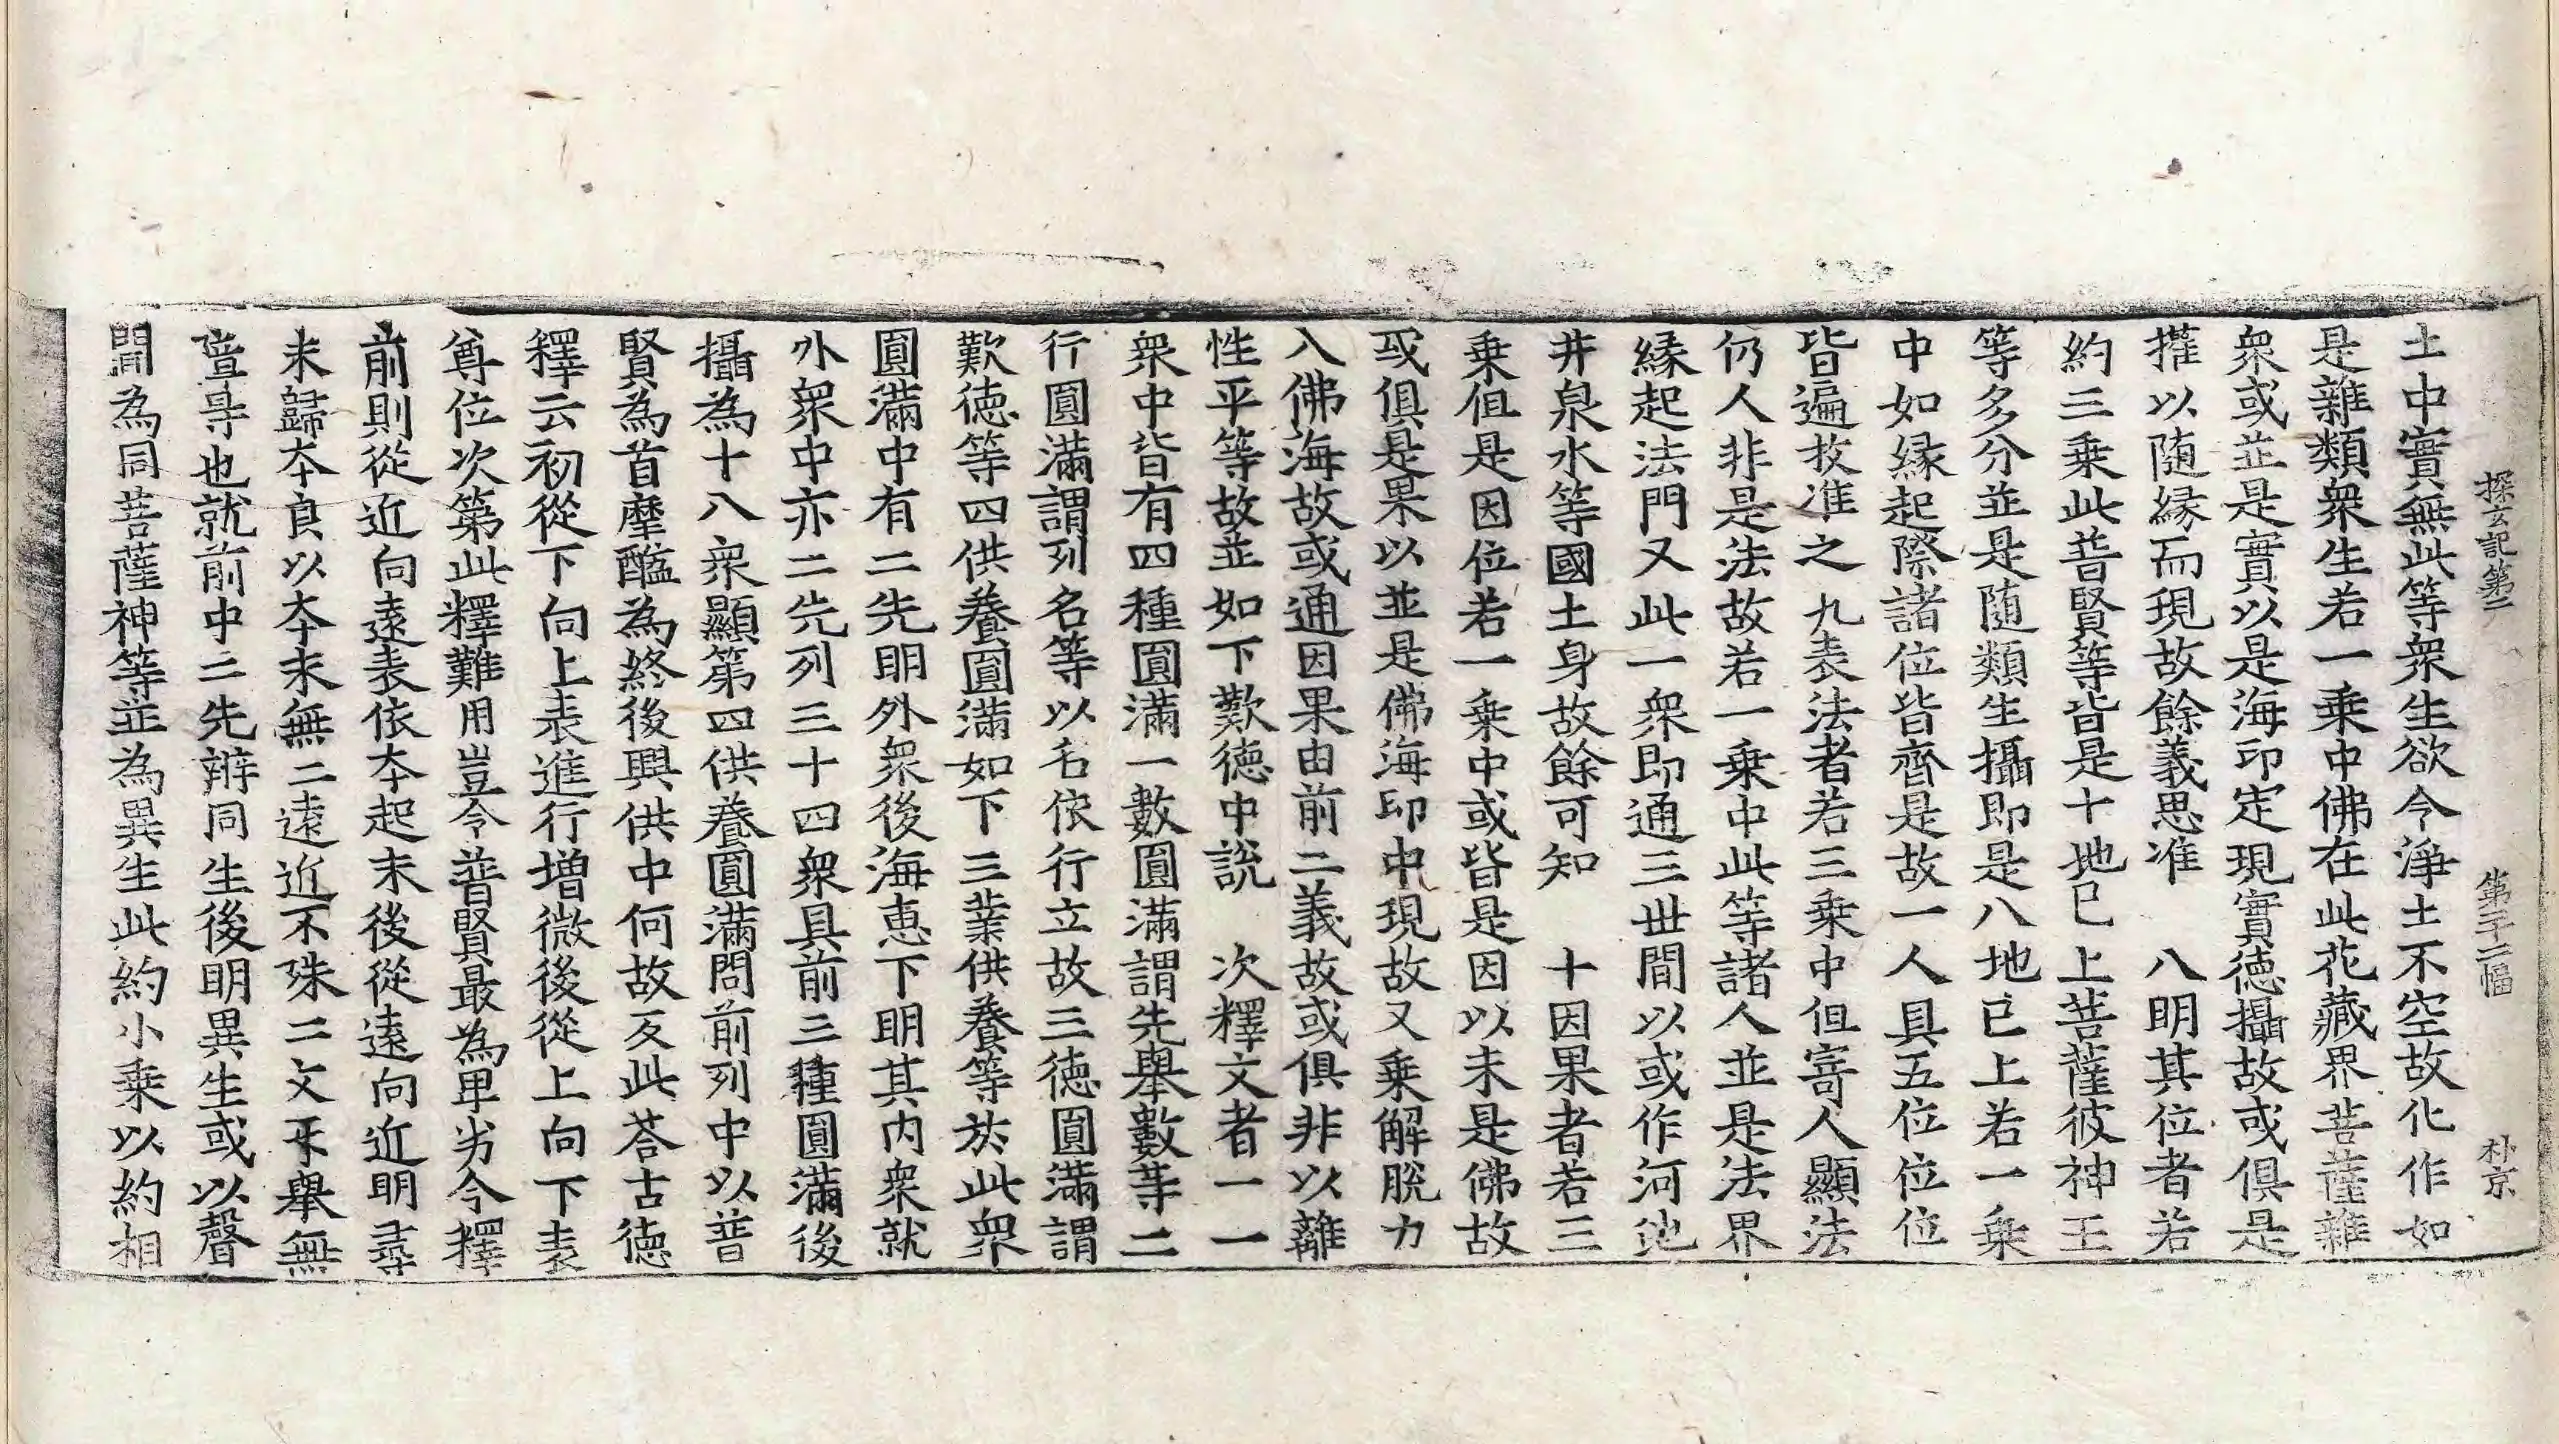 探玄記第二 第二十二幅 朴京
土中實無此等衆生欲令淨土不空故化作如
是雜類衆生若一乘中佛在此花藏界菩薩雜
衆或並是實以是海印定現實德攝故或俱是
權以随縁而現故餘義思准 八明其位者若
約三乘此普賢等皆是十地已上菩薩彼神王
等多分並是随類生攝即是八地已上若一乘
中如縁起際諸位皆齊是故一人具五位位位
皆遍故准之 九表法者若三乘中但寄人顯法
仍人非是法故若一乘中此等諸人並是法界
縁起法門又此一衆即通三世間以或作河池
井泉水等國土身故餘可知 十因果者若三
乗但是因位若一乗中或皆是因以未是佛故
或俱是果以並是佛海印中現故又乗解脫力
入佛海故或通因果由前二義故或俱非以離
性平等故並如下歎德中說 次釋文者一一
衆中皆有四種圓滿一數圓滿謂先舉數等二
行圓滿謂列名等以名依行立故三德圓滿謂
歎德等四供養圓滿如下三業供養等於此衆
圓滿中有二先明外衆後海恵下明其内衆就
外衆中亦二先列三十四衆具前三種圓滿後
攝為十八衆顯第四供養圓滿問前列中以普
賢為首摩醯為終後興供中何故反此荅古德
釋云初從下向上表進行增微後從上向下表
尊位次第此釋難用豈令普賢最為卑劣今釋
前則從近向遠表依本起末後從遠向近明尋
末歸本良以本末無二遠近不殊二文互舉無
 也就前中二先辨同生後明異生或以聲
聞為同菩薩神等並為異生此約小乗以約相